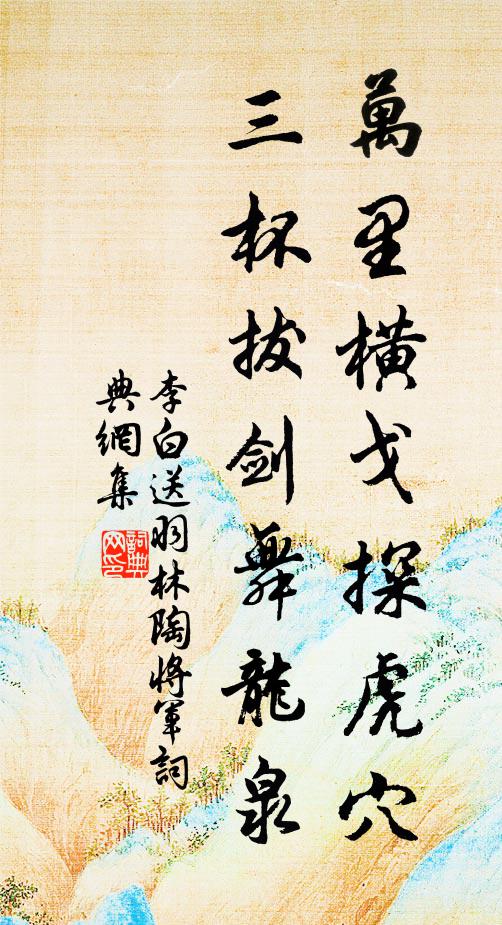 萬里橫戈探虎穴
三杯拔劍舞龍泉
李白送羽林陶將軍詞
典網集
詞典
網印